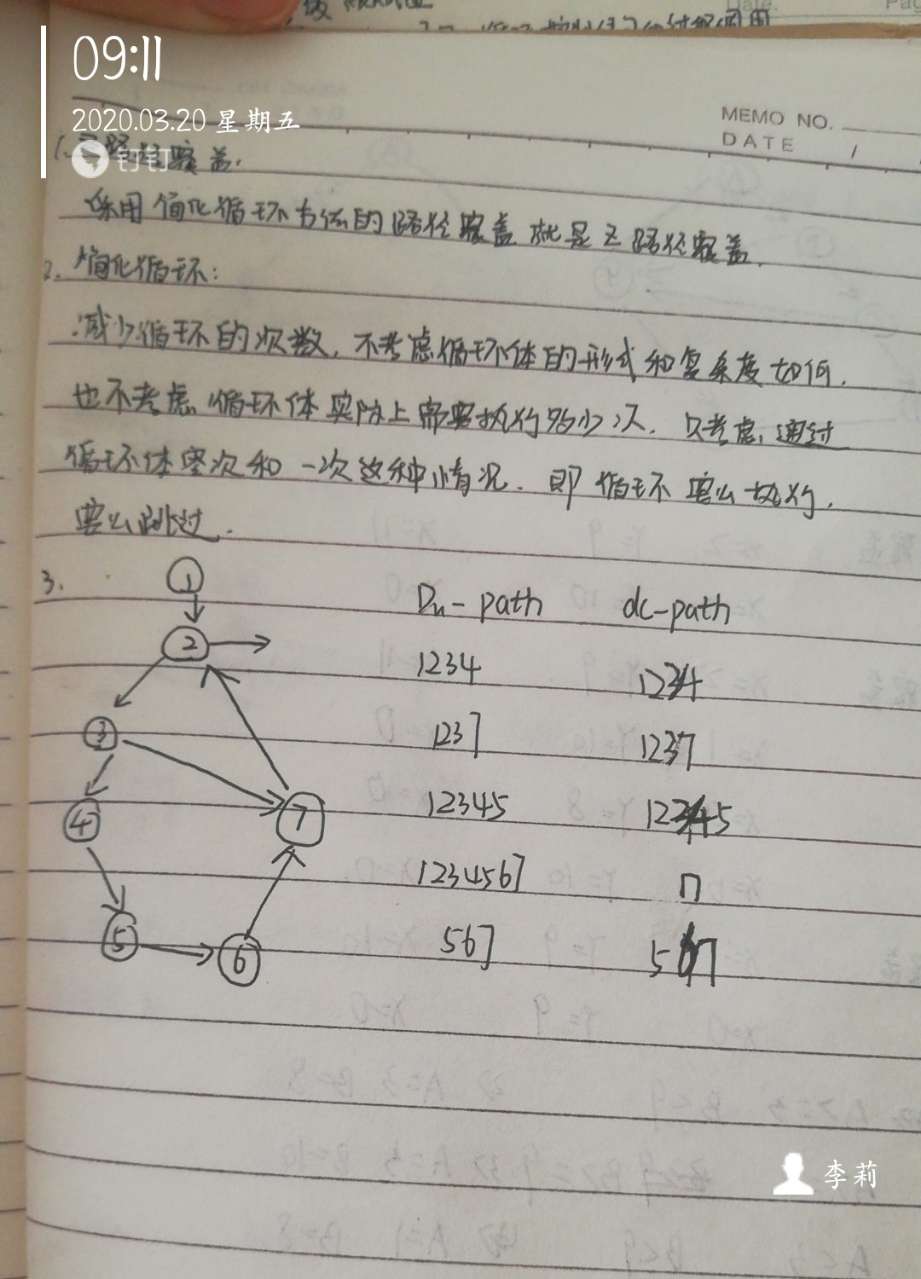 09:11
2020.03.20 星期五
钉钉
MEMO NO.
DATE /
1. 路径覆盖.
采用简化循环方法的路径覆盖就是Z路径覆盖.
2. 简化循环:
减少循环的次数, 不考虑循环体的形式和复杂度如何,
也不考虑循环体实际上需要执行多少次. 只考虑通过
循环体零次和一次这种情况. 即循环要么执行,
要么跳过.
3.
1
2
3
4
5
6
7
Du-path dc-path
1234 1234
1237 1237
12345 12345
1234567
567 567
李莉